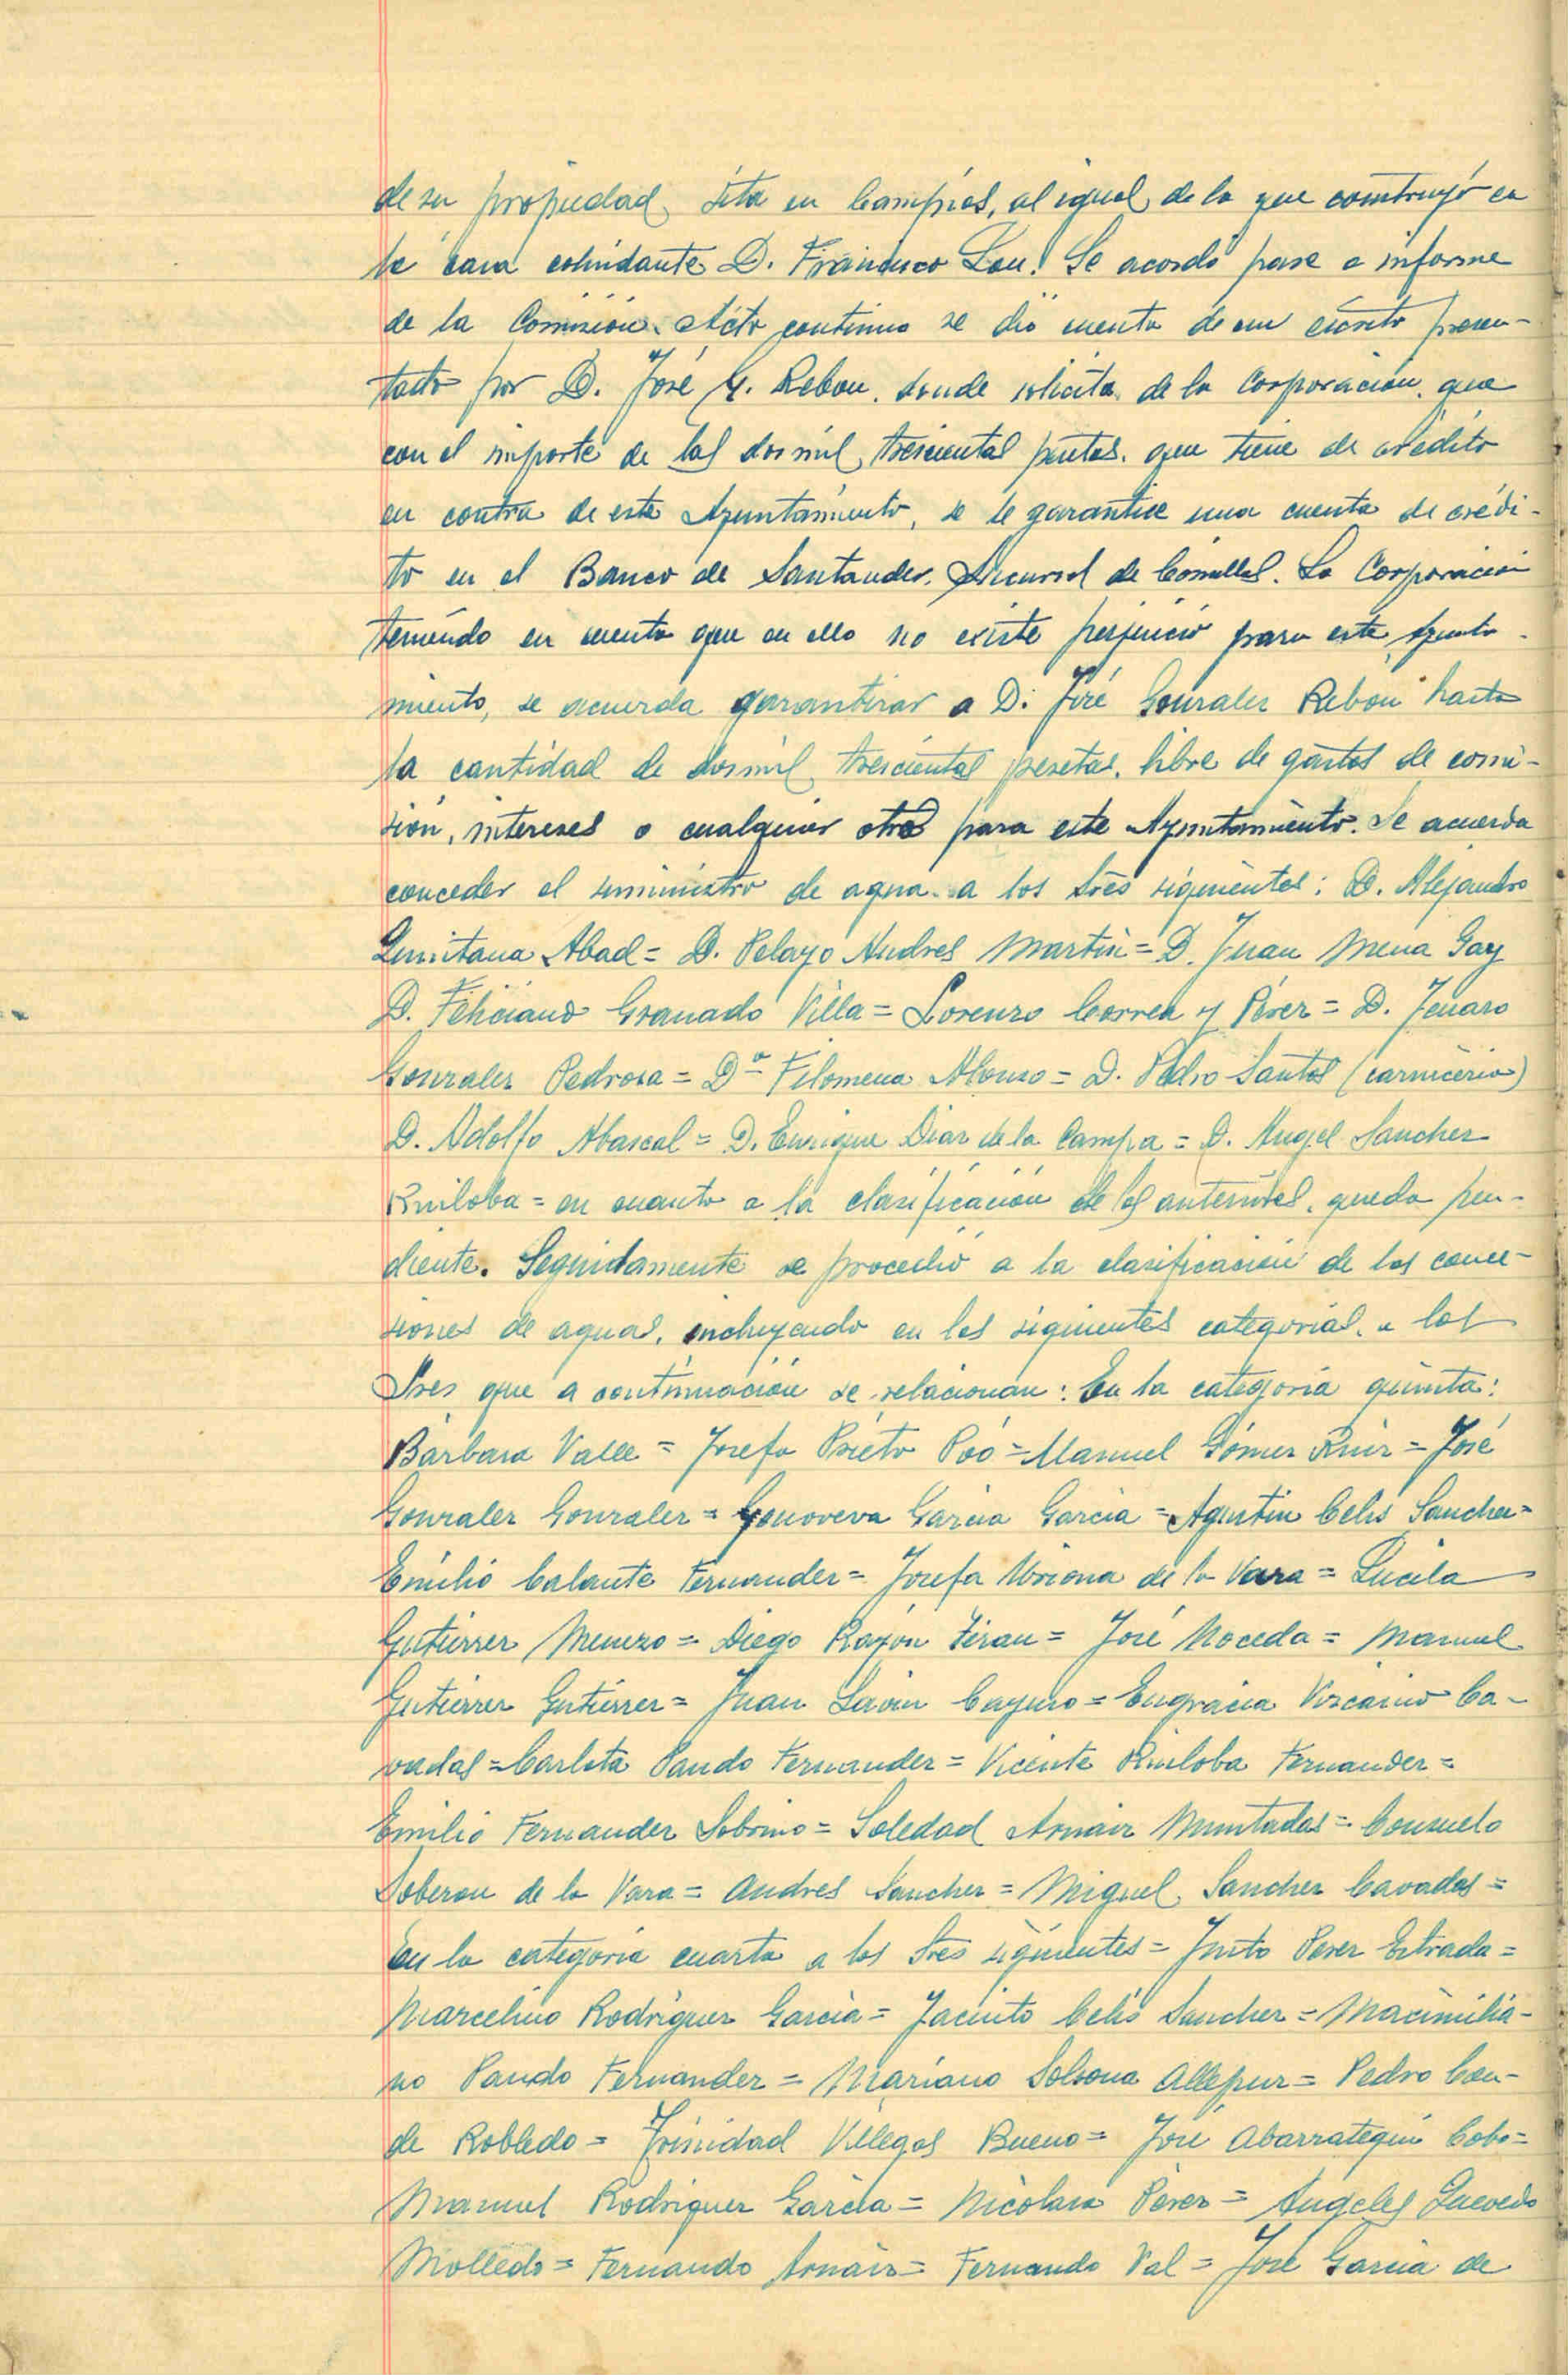 de su propiedad, sita en Campíos, al igual de la que construyó en
la casa colindante D. Francisco Lou. Se acordó pase a informe
de la Comisión. Acto continuo se dió cuenta de un escrito presen-
tado por D. José G. Rebou. donde solicita de la Corporación, que
con el importe de las dos mil trescientas pesetas. que tiene de crédito
en contra de este Ayuntamiento, se le garantice una cuenta de crédi-
to en el Banco de Santander, Sucursal de Comillas. La Corporación
teniendo en cuenta que en ello no existe perjuicio para este Ayunta-
miento, se acuerda garantizar a D. José Gonzalez Rebón hasta
la cantidad de dosmil trescientas pesetas. libre de gastos de comi-
sión, intereses o cualquier otros para este Ayuntamiento. Se acuerda
conceder el suministro de agua a los Sres siguientes: D. Alejandro
Quintana Abad = D. Pelayo Andres Martin = D. Juan Mena Gay
D. Feliciano Granado Villa = Lorenzo Correa y Pérez = D. Jenaro
Gonzalez Pedrosa = Dª Filomena Alonso = D. Pedro Santos (carniceria)
D. Adolfo Abascal = D. Enrique Diaz de la Campa = D. Angel Sanchez
Ruiloba = en cuanto a la clasificación de los anteriores, queda pen-
diente. Seguidamente se procedió a la clasificación de las conce-
siones de aguas, incluyendo en las siguientes categorias, a los
Sres que a continuación se relacionan: En la categoria quinta:
Bárbara Valle = Josefa Prieto Poó = Manuel Gómez Ruiz = José
Gonzalez Gonzalez = Genoveva Garcia Garcia = Agustin Celis Sanchez =
Emilio Calante Fernandez = Josefa Uriona de la Vara = Lucila
Gutierrez Menezo = Diego Rayón Terán = José Noceda = Manuel
Gutierrez Gutierrez = Juan Lavin Cayuso = Engracia Vizcaino Ca-
vadas = Carlota Pando Fernandez = Vicente Ruiloba Fernandez =
Emilio Fernandez Sobrino = Soledad Arnaiz Muntadas = Consuelo
Soberon de la Vara = Andres Sanchez = Miguel Sanchez Cavadas =
En la categoria cuarta a los Sres siguientes = Justo Perez Estrada =
Marcelino Rodriguez Garcia = Jacinto Celis Sanchez = Macimilia-
no Pando Fernandez = Mariano Solsona Allepuz = Pedro Con-
de Robledo = Trinidad Villegas Bueno = José Abarrategui Cobo =
Manuel Rodriguez Garcia = Nicolasa Pérez = Angeles Quevedo
Molledo = Fernando Arnaiz = Fernando Val = José Garcia de